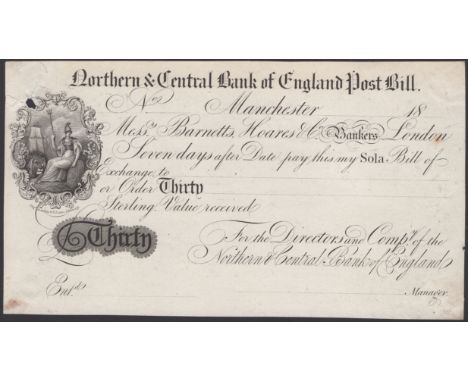 Northern & Central Bank of England Post Bill.
No.
Manchester 18
Messrs. Barnetts, Hoares & Co. Bankers London
Seven days after Date pay this my Sola Bill of
Exchange to
or Order Thirty
Sterling Value received
£ Thirty
For the Directors and Compy. of the
Northern & Central Bank of England
Entd.
Manager